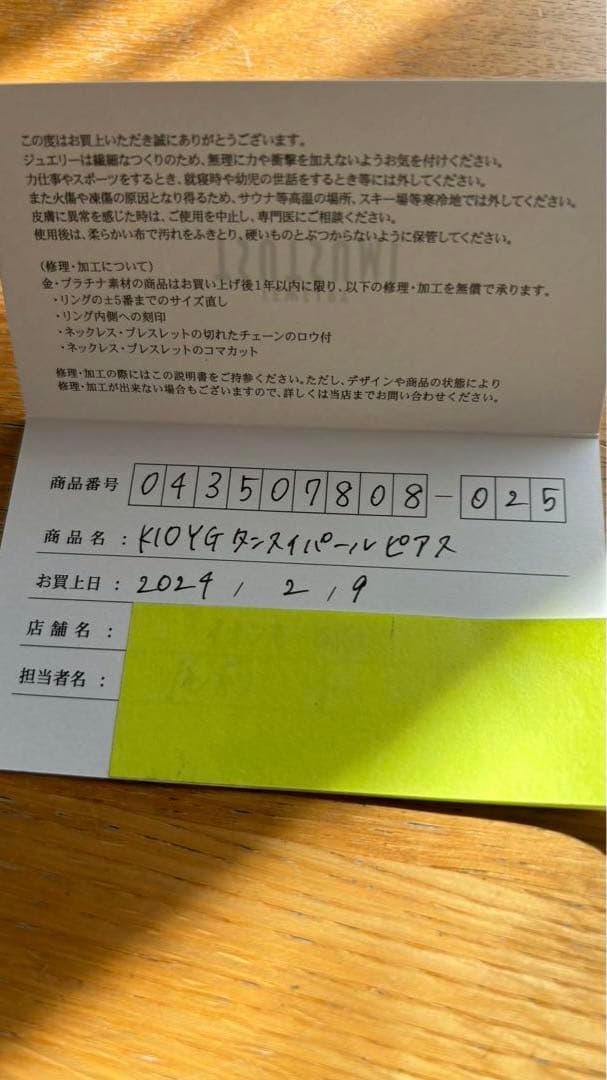 この度はお買上いただき誠にありがとうございます。
ジュエリーは繊細なつくりのため、無理に力や衝撃を加えないようお気を付けください。
力仕事やスポーツをするとき、就寝時や幼児の世話をするとき等には外してください。
また火傷や凍傷の原因となり得るため、サウナ等高温の場所、スキー場等寒冷地では外してください。
皮膚に異常を感じた時は、ご使用を中止し、専門医にご相談ください。
使用後は、柔らかい布で汚れをふきとり、硬いものとぶつからないように保管してください。
(修理・加工について)
金・プラチナ素材の商品はお買い上げ後1年以内に限り、以下の修理・加工を無償で承ります。
・リングの±5番までのサイズ直し
・リング内側への刻印
・ネックレス・ブレスレットの切れたチェーンのロウ付
・ネックレス・ブレスレットのコマカット
修理・加工の際にはこの説明書をご持参ください。ただし、デザインや商品の状態により
修理・加工が出来ない場合もございますので、詳しくは当店までお問い合わせください。
商品番号 043507808-025
商品名：K10YGタンスイパールピアス
お買上日：2024, 2, 9
店舗名：
担当者名：